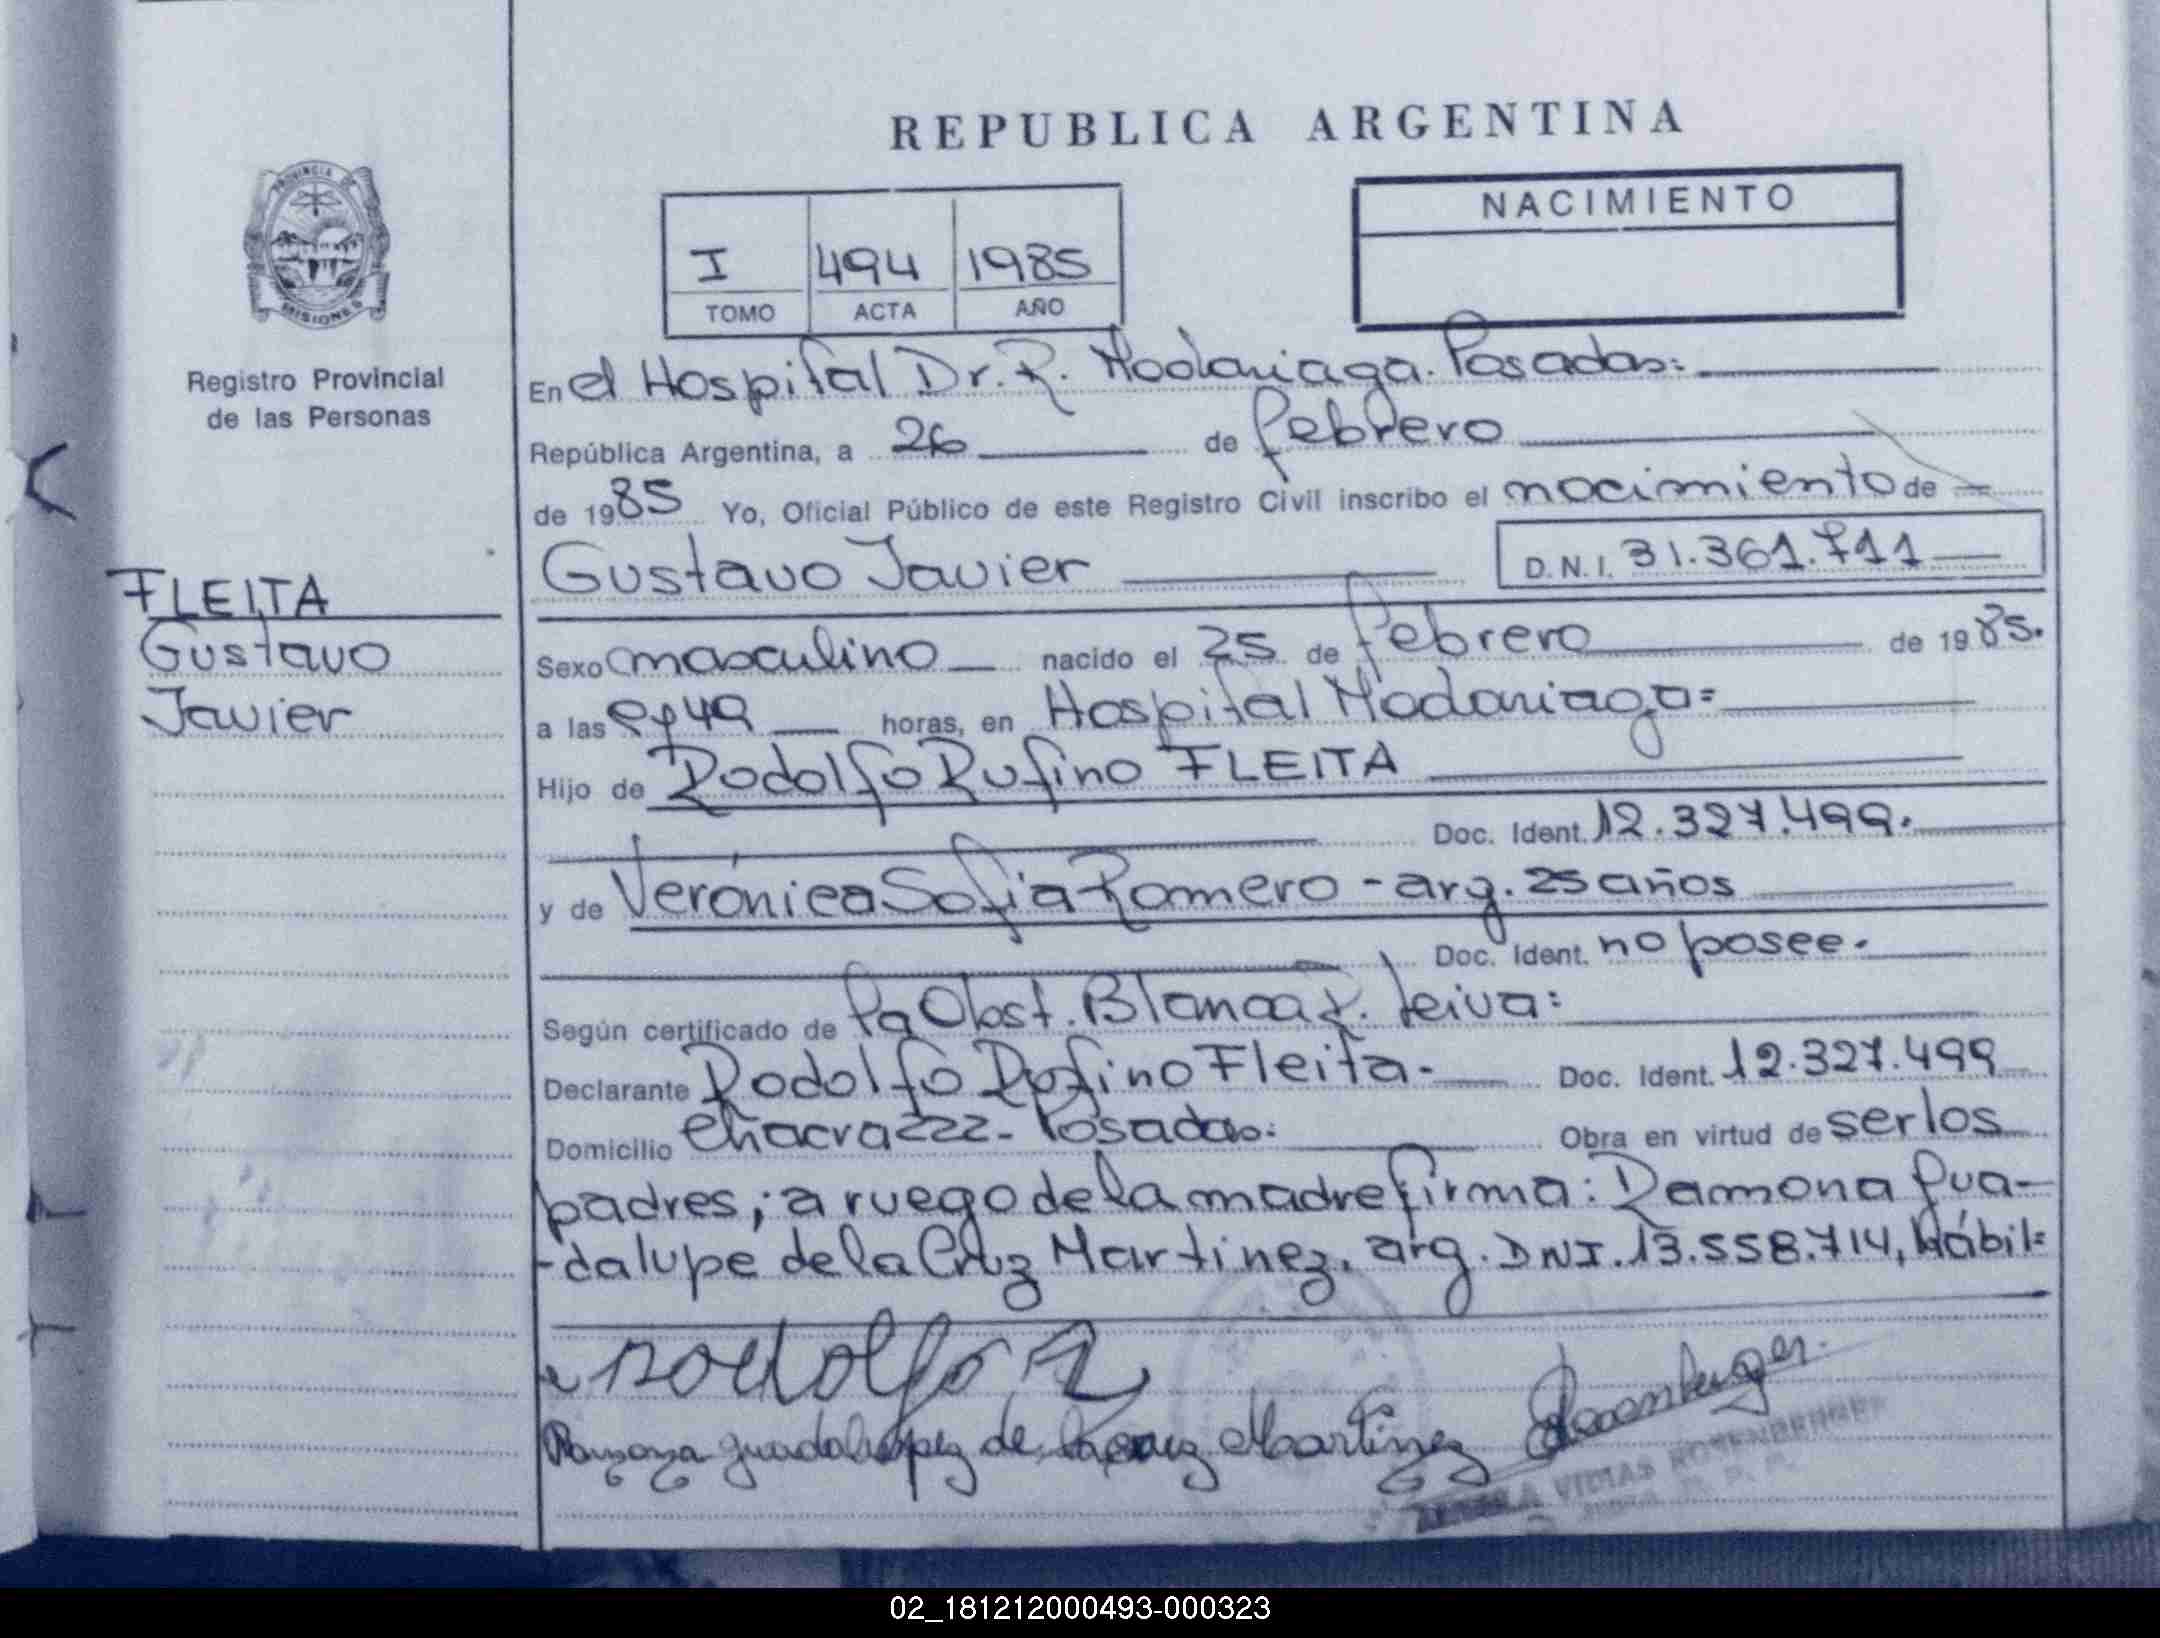 REPUBLICA ARGENTINA
PROVINCIA DE
MISIONES
Registro Provincial
de las Personas
I 494 1985
TOMO ACTA AÑO
NACIMIENTO
En el Hospital Dr. R. Madariaga. Posadas:
República Argentina, a 26 de febrero
de 1985 Yo, Oficial Público de este Registro Civil inscribo el nacimiento de
Gustavo Javier D.N.I. 31.361.711
FLEITA
Gustavo
Javier
Sexo masculino nacido el 25 de febrero de 1985.
a las horas, en Hospital Madariaga=
Hijo de Rodolfo Rufino FLEITA
Doc. Ident. 12.327.499.
y de Verónica Sofia Romero - arg. 25 años
Doc. Ident. no posee.
Según certificado de Obst. Blanca R. Leiva:
Declarante Rodolfo Rufino Fleita- Doc. Ident. 12.327.499
Domicilio Chacra 222- Posadas: Obra en virtud de ser los
padres; a ruego de la madre firma: Ramona Gua-
-dalupe de la Cruz Martinez, arg. DNI. 13.558.714, hábil=
Rodolfo R
guadalupez de Martinez
VIDIAS ROSENBERGER
02_181212000493-000323